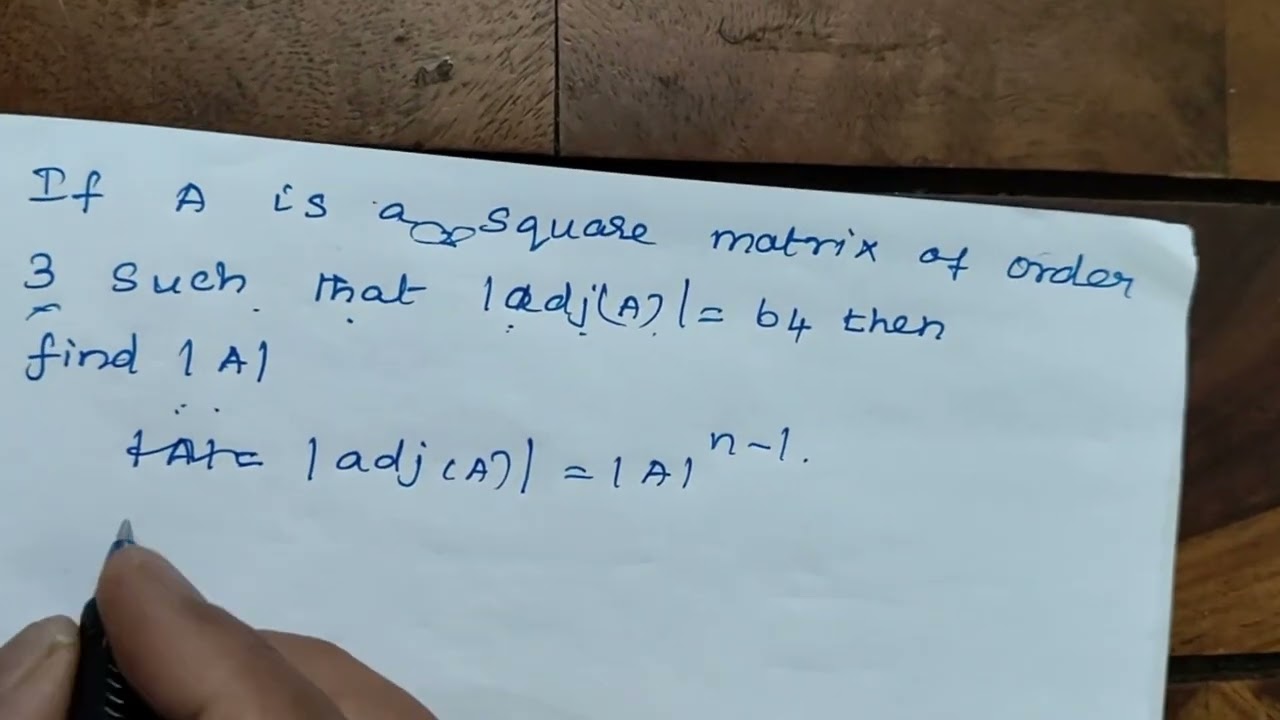 If A is a square matrix of order
3 such that |adj(A)| = 64 then
find |A|
|A|= |adj(A)| = |A|^{n-1}.